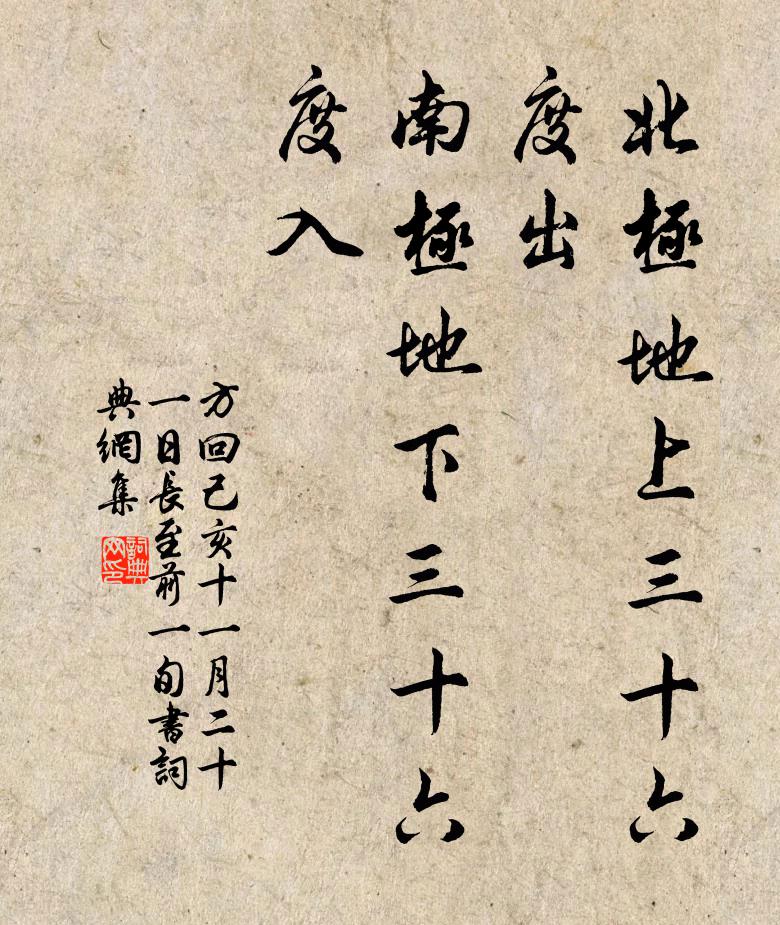 北極地上三十六
度出
南極地下三十六
度入
方回己亥十一月二十
一日長至前一旬書詞
典網集
詞典
网印